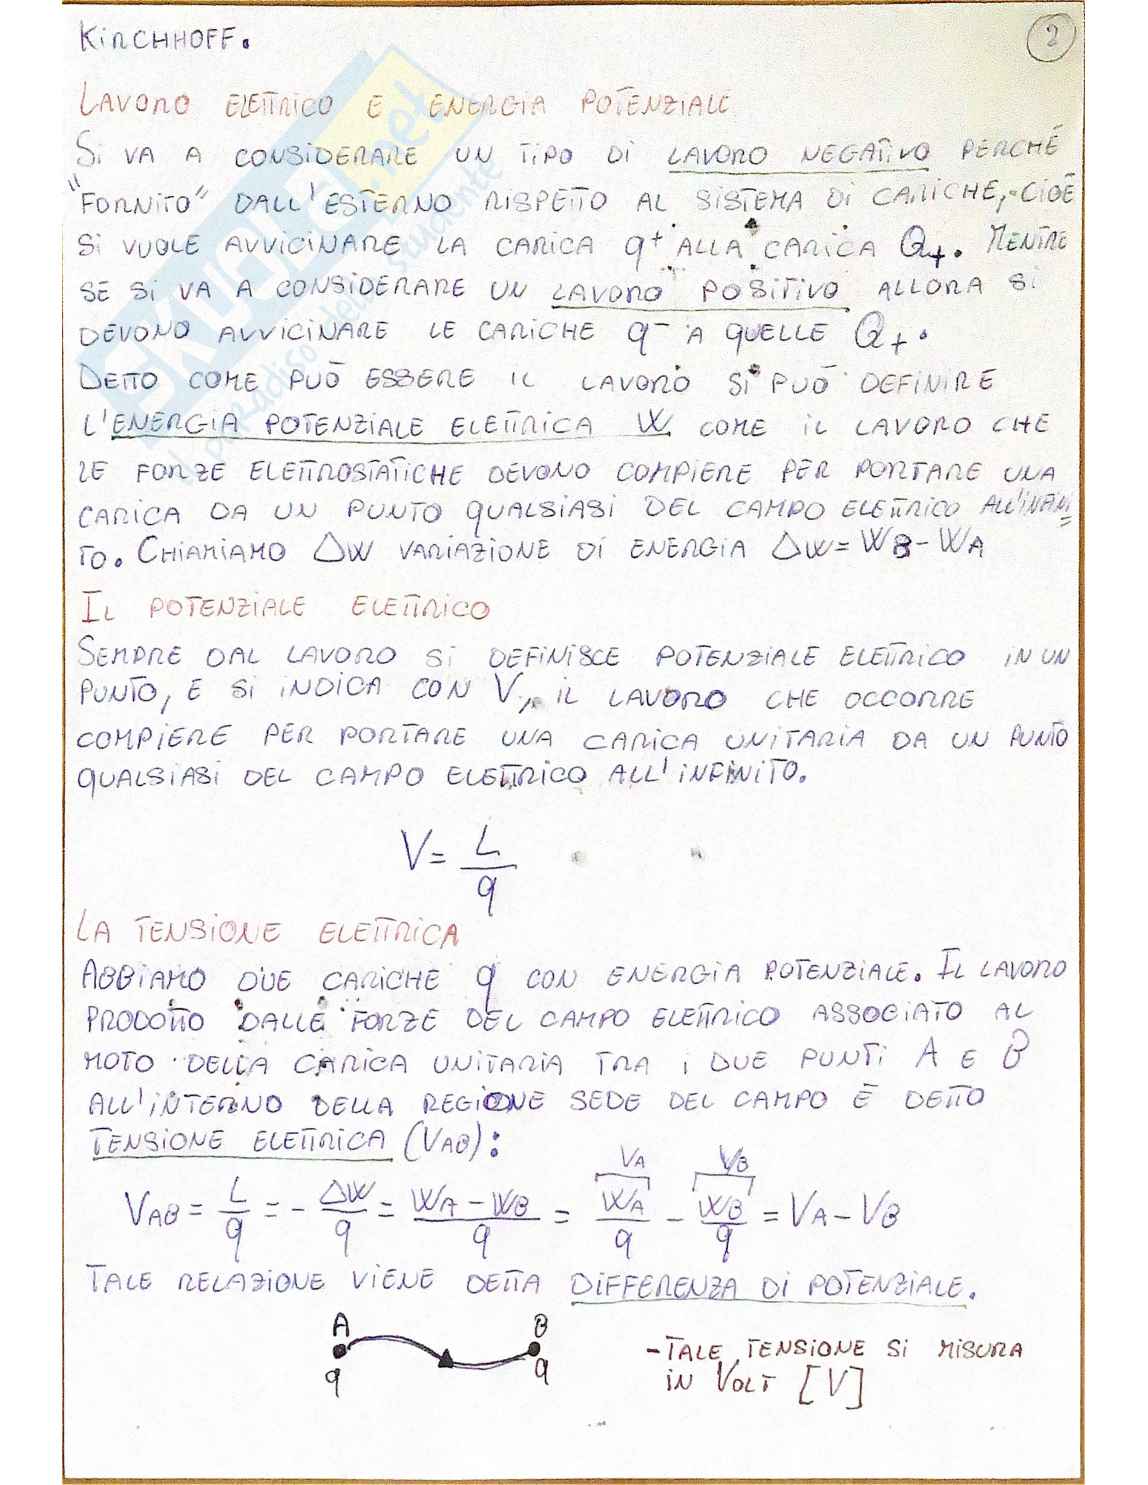 KIRCHHOFF.
2
LAVORO ELETTRICO E ENERGIA POTENZIALE
SI VA A CONSIDERARE UN TIPO DI LAVORO NEGATIVO PERCHÉ
"FORNITO" DALL'ESTERNO RISPETTO AL SISTEMA DI CARICHE, CIOÈ
SI VUOLE AVVICINARE LA CARICA q+ ALLA CARICA Q+. MENTRE
SE SI VA A CONSIDERARE UN LAVORO POSITIVO ALLORA SI
DEVONO AVVICINARE LE CARICHE q- A QUELLE Q+.
DETTO COME PUÒ ESSERE IL LAVORO SI PUÒ DEFINIRE
L'ENERGIA POTENZIALE ELETTRICA W COME IL LAVORO CHE
LE FORZE ELETTROSTATICHE DEVONO COMPIERE PER PORTARE UNA
CARICA DA UN PUNTO QUALSIASI DEL CAMPO ELETTRICO ALL'INFINI=
TO. CHIAMIAMO ΔW VARIAZIONE DI ENERGIA ΔW = WB - WA
IL POTENZIALE ELETTRICO
SEMPRE DAL LAVORO SI DEFINISCE POTENZIALE ELETTRICO IN UN
PUNTO, E SI INDICA CON V, IL LAVORO CHE OCCORRE
COMPIERE PER PORTARE UNA CARICA UNITARIA DA UN PUNTO
QUALSIASI DEL CAMPO ELETTRICO ALL'INFINITO.
V = L/q
LA TENSIONE ELETTRICA
ABBIAMO DUE CARICHE q CON ENERGIA POTENZIALE. IL LAVORO
PRODOTTO DALLE FORZE DEL CAMPO ELETTRICO ASSOCIATO AL
MOTO DELLA CARICA UNITARIA TRA I DUE PUNTI A E B
ALL'INTERNO DELLA REGIONE SEDE DEL CAMPO È DETTO
TENSIONE ELETTRICA (VAB):
VA VB
VAB = L/q = - ΔW/q = WA - WB/q = WA/q - WB/q = VA - VB
TALE RELAZIONE VIENE DETTA DIFFERENZA DI POTENZIALE.
A B
q q
- TALE TENSIONE SI MISURA
IN VOLT [V]
SKUOLA.net
il paradiso dello studente